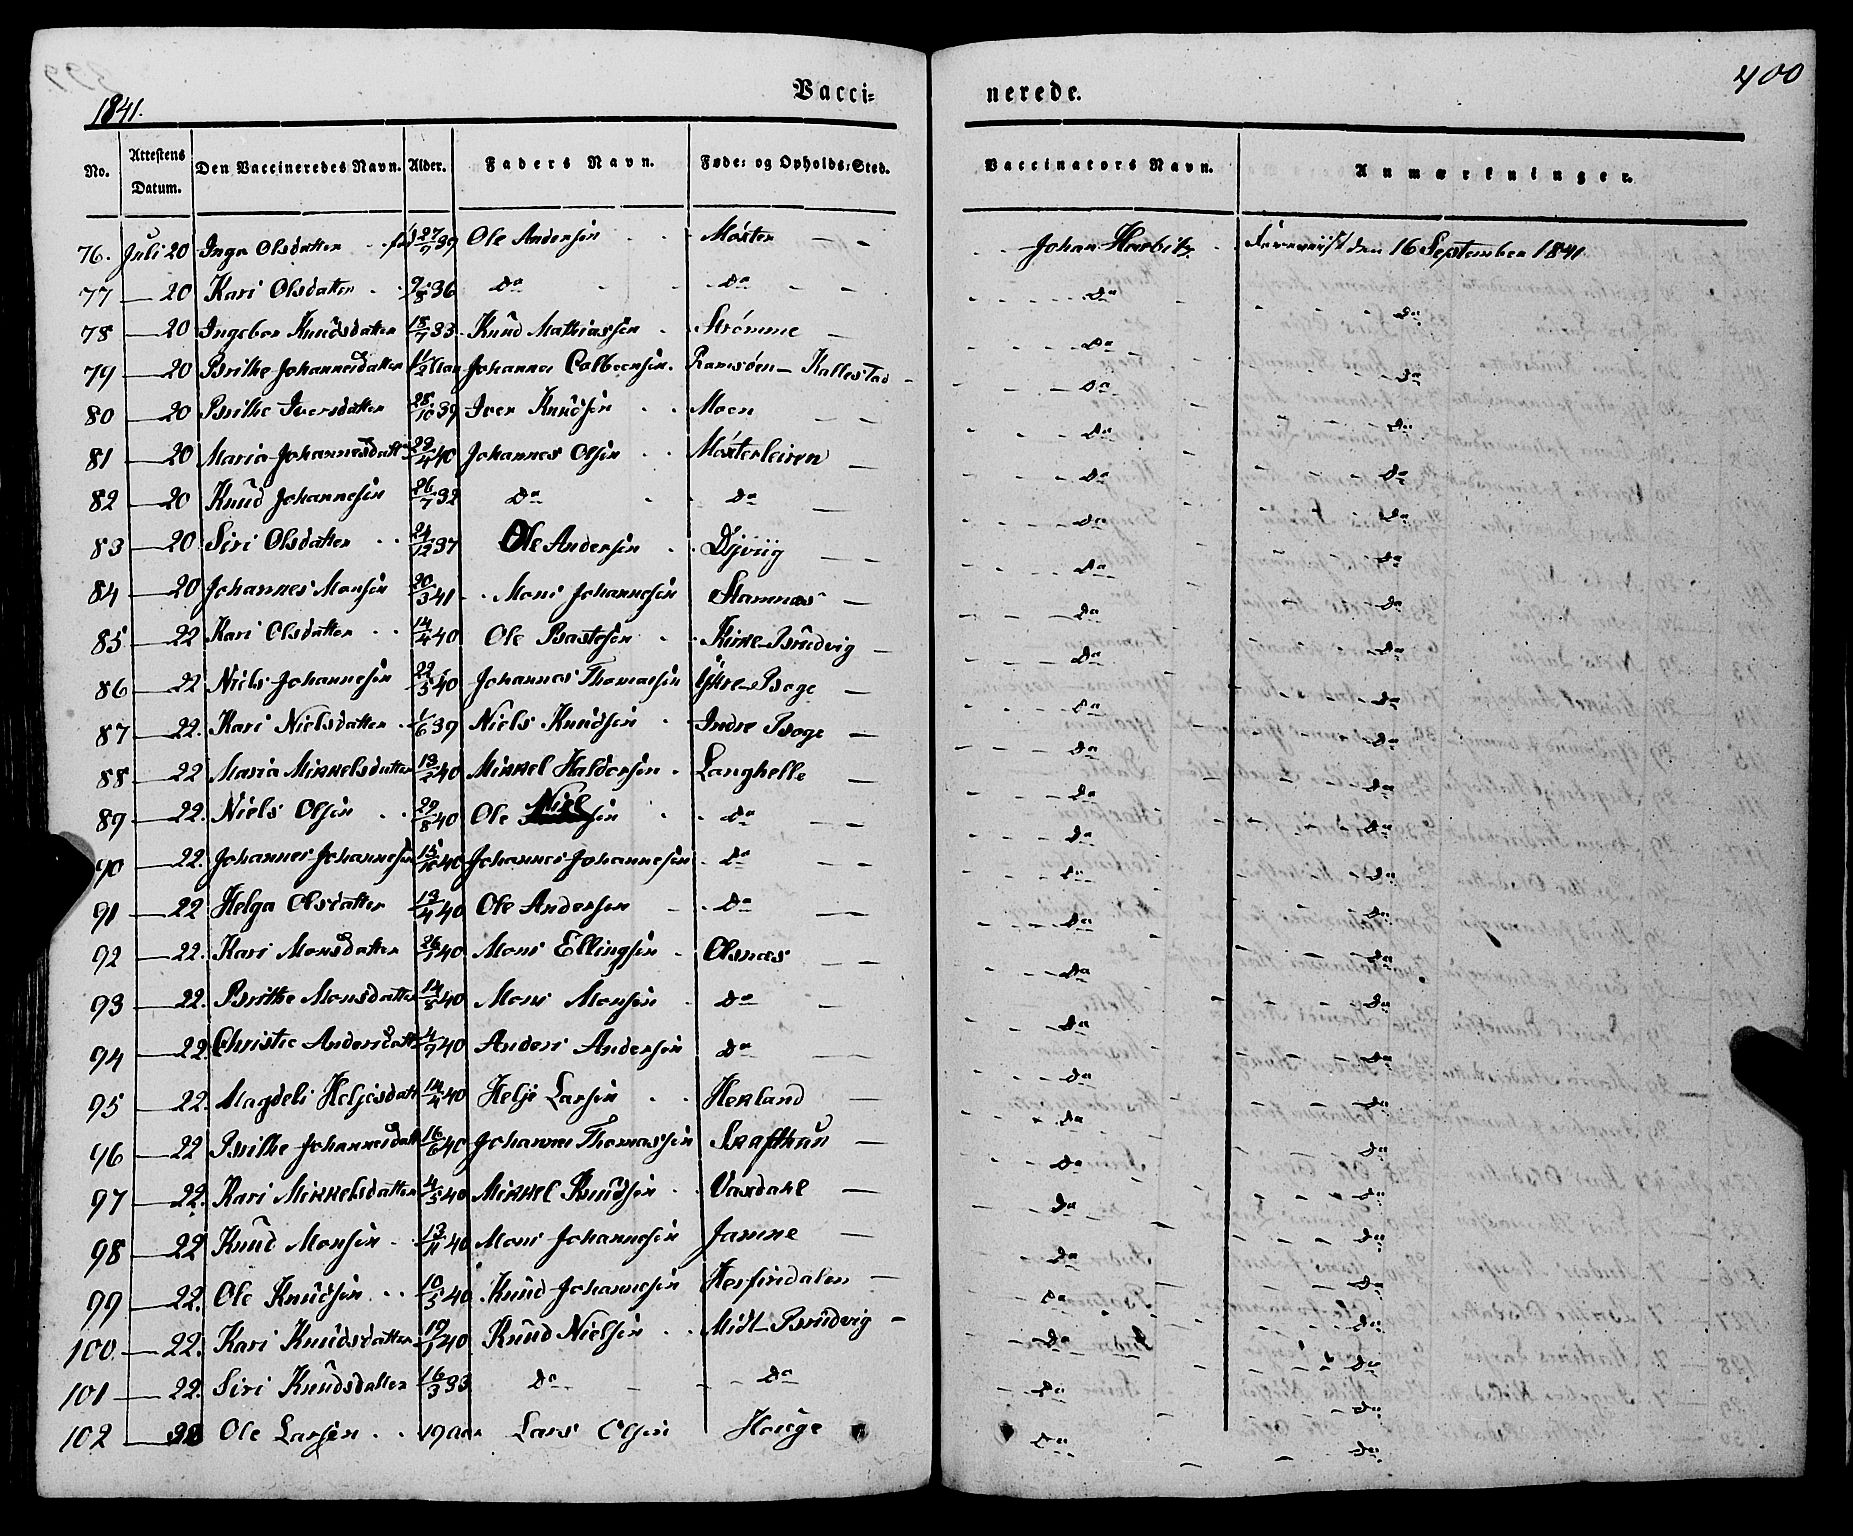 400
1841.
Vacci= nerede.
No. Attestens Datum. Den Vaccineredes Navn. Alder. Faders Navn. Føde= og Opholds=Sted. Vaccinators Navn. Anmærkninger.
76. Juli 20 Inga Olsdatter fød 27/7 39 Ole Andersen Moster Johan Forevist den 16 September 1841
77 — 20 Kari Olsdatter 2/8 36 Do Do Do Do
78 — 20 Ingebor Knudsdatter 18/7 33 Knud Mathiassen Strømme Do Do
79 — 20 Brithe Johannesdatter Johannes Do Do
80 — 20 Brithe Iversdatter 28/10 39 Iver Knudsen Moen Do Do
81 — 20 Maria Johannesdatt 22/4 40 Johannes Olsen Mosterleiren Do Do
82 — 20 Knud Johannesen 26/7 32 Do Do Do Do
83 — 20 Siri Olsdatter 24/12 37 Ole Andersen Do Do
84 — 20 Johannes Monsen 20/3 41 Mons Johannesen Stamnæs Do Do
85 — 22 Kari Olsdatter 14/4 40 Ole Kirke-Brudvig Do Do
86 — 22 Niels Johannesen 22/5 40 Johannes Thomasen Ytre-Boge Do Do
87 — 22. Kari Nielsdatter 1/6 39 Niels Knudsen Indre Boge Do Do
88 — 22 Maria Mikkelsdatter 40 Mikkel Haldorsen Langhelle Do Do
89 — 22. Niels Olsen 22/8 40 Ole Nielsen Do Do Do
90 — 22. Johannes Johannesen 15/10 40 Johannes Johannesen Do Do Do
91 — 22 Helga Olsdatter 13/4 40 Ole Andersen Do Do Do
92 — 22. Kari Monsdatter 40 Mons Ellingsen Olsnæs Do Do
93 — 22. Brithe Monsdatter 14/8 40 Mons Monsen Do Do Do
94 — 22 Christie Andersdatt 4/9 40 Anders Andersen Do Do Do
95 — 22. Magdeli Heljesdatt 40 Helje Larsen Herland Do Do
96 — 22 Brithe Johannesdatt 16/6 40 Johannes Thomassen Skafthun Do Do
97 — 22. Kari Mikkelsdatter 4/5 40 Mikkel Knudsen Vaxdahl Do Do
98 — 22 Knud Monsen 13/11 40 Mons Johannesen Jamne Do Do
99 — 22. Ole Knudsen 10/5 40 Knud Johannesen Do Do
100. — 22. Kari Knudsdatter 40 Knud Nielsen Midt-Brudvig Do Do
101 — 22. Siri Knudsdatter 16/3 33 Do Do Do Do
102 — Ole Larsen 19 Aar Lars Olsen Houge Do Do